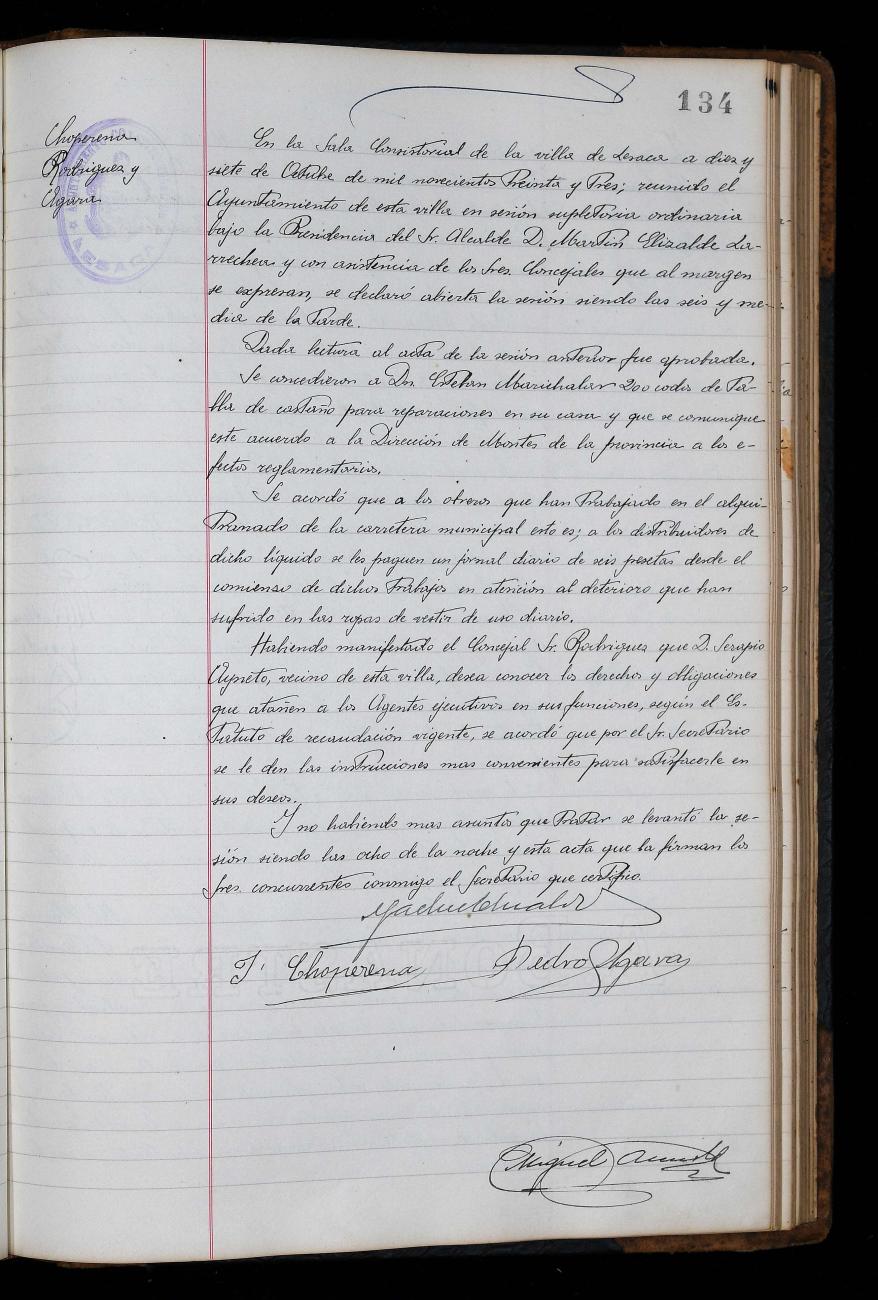 134
Choperena
Rodriguez y
Ugara
En la Sala Consistorial de la villa de Lesaca a diez y
siete de Octubre de mil novecientos Treinta y Tres; reunido el
Ayuntamiento de esta villa en sesión supletoria ordinaria
bajo la Presidencia del Sr. Alcalde D. Martin Elizalde La-
rrechea y con asistencia de los Sres. Concejales que al margen
se expresan, se declaró abierta la sesión siendo las seis y me-
dia de la Tarde.
Dada lectura al acta de la sesión anterior fue aprobada.
Se concedieron a Dn. Esteban Marichalar 200 codos de Ta-
bla de castaño para reparaciones en su casa y que se comunique
este acuerdo a la Dirección de Montes de la provincia a los e-
fectos reglamentarios.
Se acordó que a los obreros que han Trabajado en el alqui-
Tranado de la carretera municipal esto es; a los distribuidores de
dicho liquido se les paguen un jornal diario de seis pesetas desde el
comienzo de dichos Trabajos en atención al deterioro que han
sufrido en las ropas de vestir de uso diario.
Habiendo manifestado el Concejal Sr. Rodriguez que D. Serapio
Ayneto, vecino de esta villa, desea conocer los derechos y obligaciones
que atañen a los Agentes ejecutivos en sus funciones, según el Es-
Tatuto de recaudación vigente, se acordó que por el Sr. Secretario
se le den las instrucciones mas convenientes para satisfacerle en
sus deseos.
Y no habiendo mas asuntos que Tratar se levantó la se-
sión siendo las ocho de la noche y esta acta que la firman los
Sres. concurrentes conmigo el Secretario que certifico.
J. Choperena Pedro Ugara
Miguel